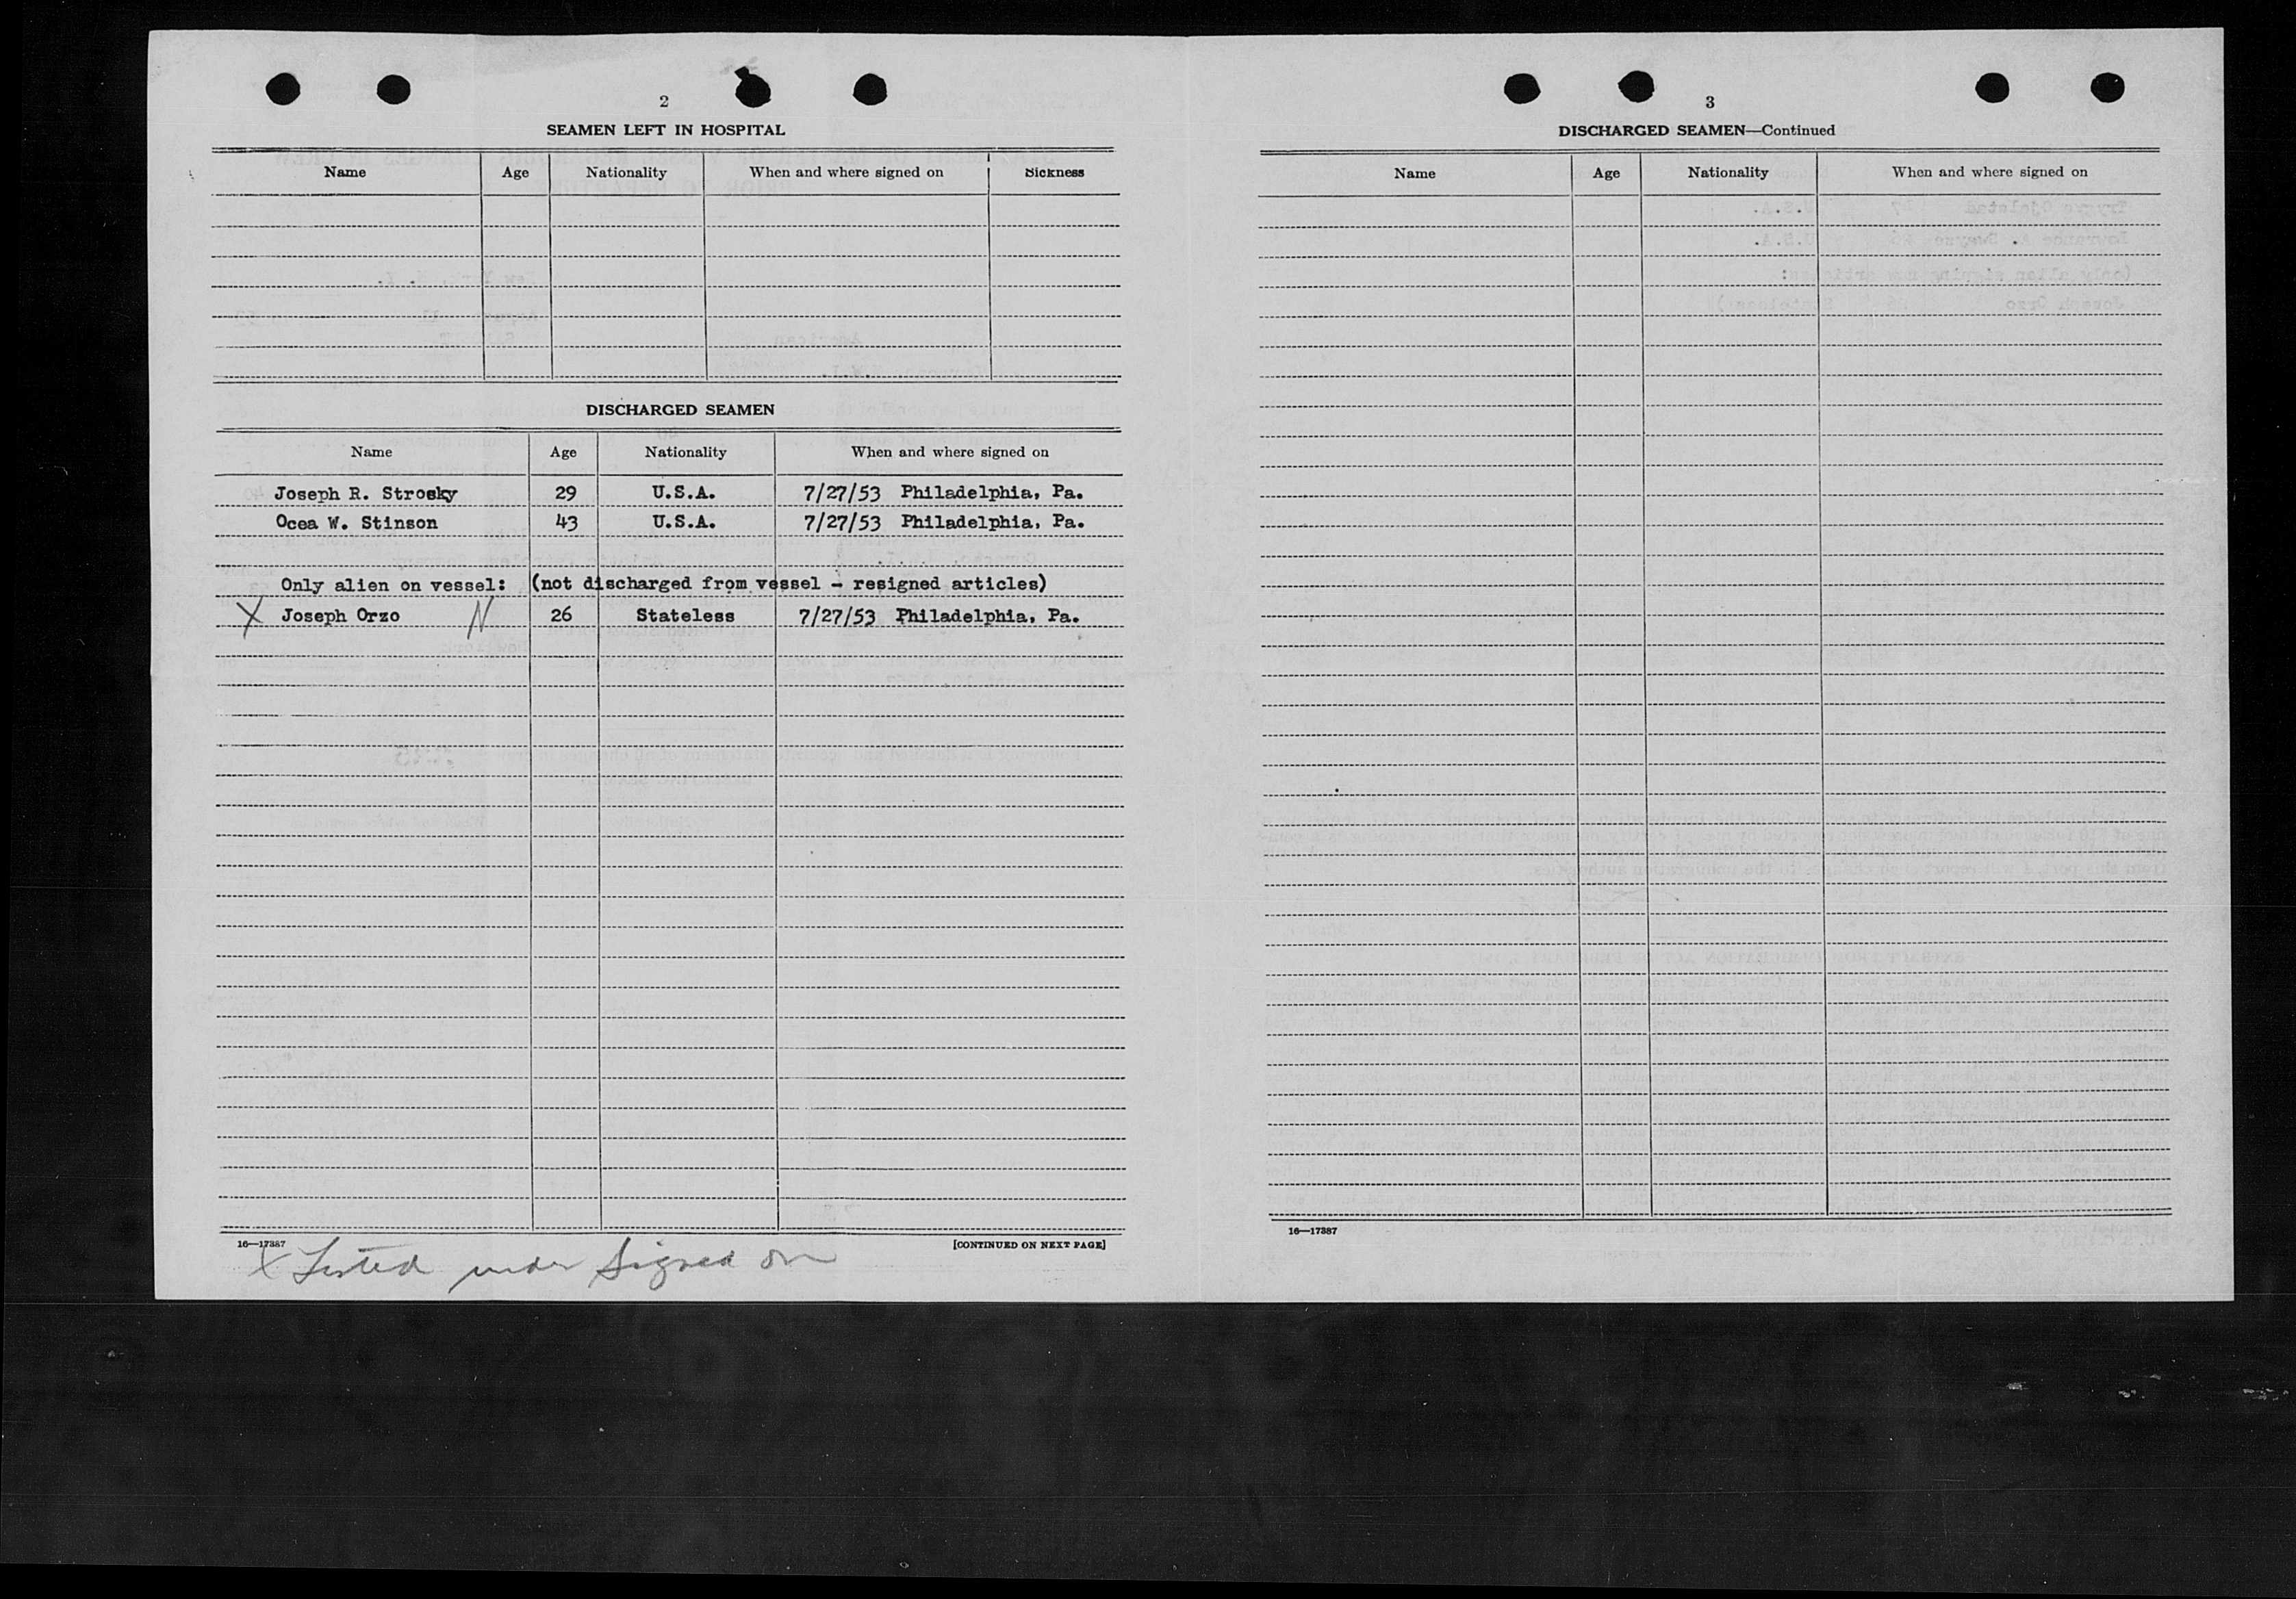 2
SEAMEN LEFT IN HOSPITAL
Name Age Nationality When and where signed on Sickness
DISCHARGED SEAMEN
Name Age Nationality When and where signed on
Joseph R. Strosky 29 U.S.A. 7/27/53 Philadelphia, Pa.
Ocea W. Stinson 43 U.S.A. 7/27/53 Philadelphia, Pa.
Only alien on vessel: (not discharged from vessel - resigned articles)
X Joseph Orzo N 26 Stateless 7/27/53 Philadelphia, Pa.
16—17387 [CONTINUED ON NEXT PAGE]
X Listed under Signed on
3
DISCHARGED SEAMEN—Continued
Name Age Nationality When and where signed on
16—17387